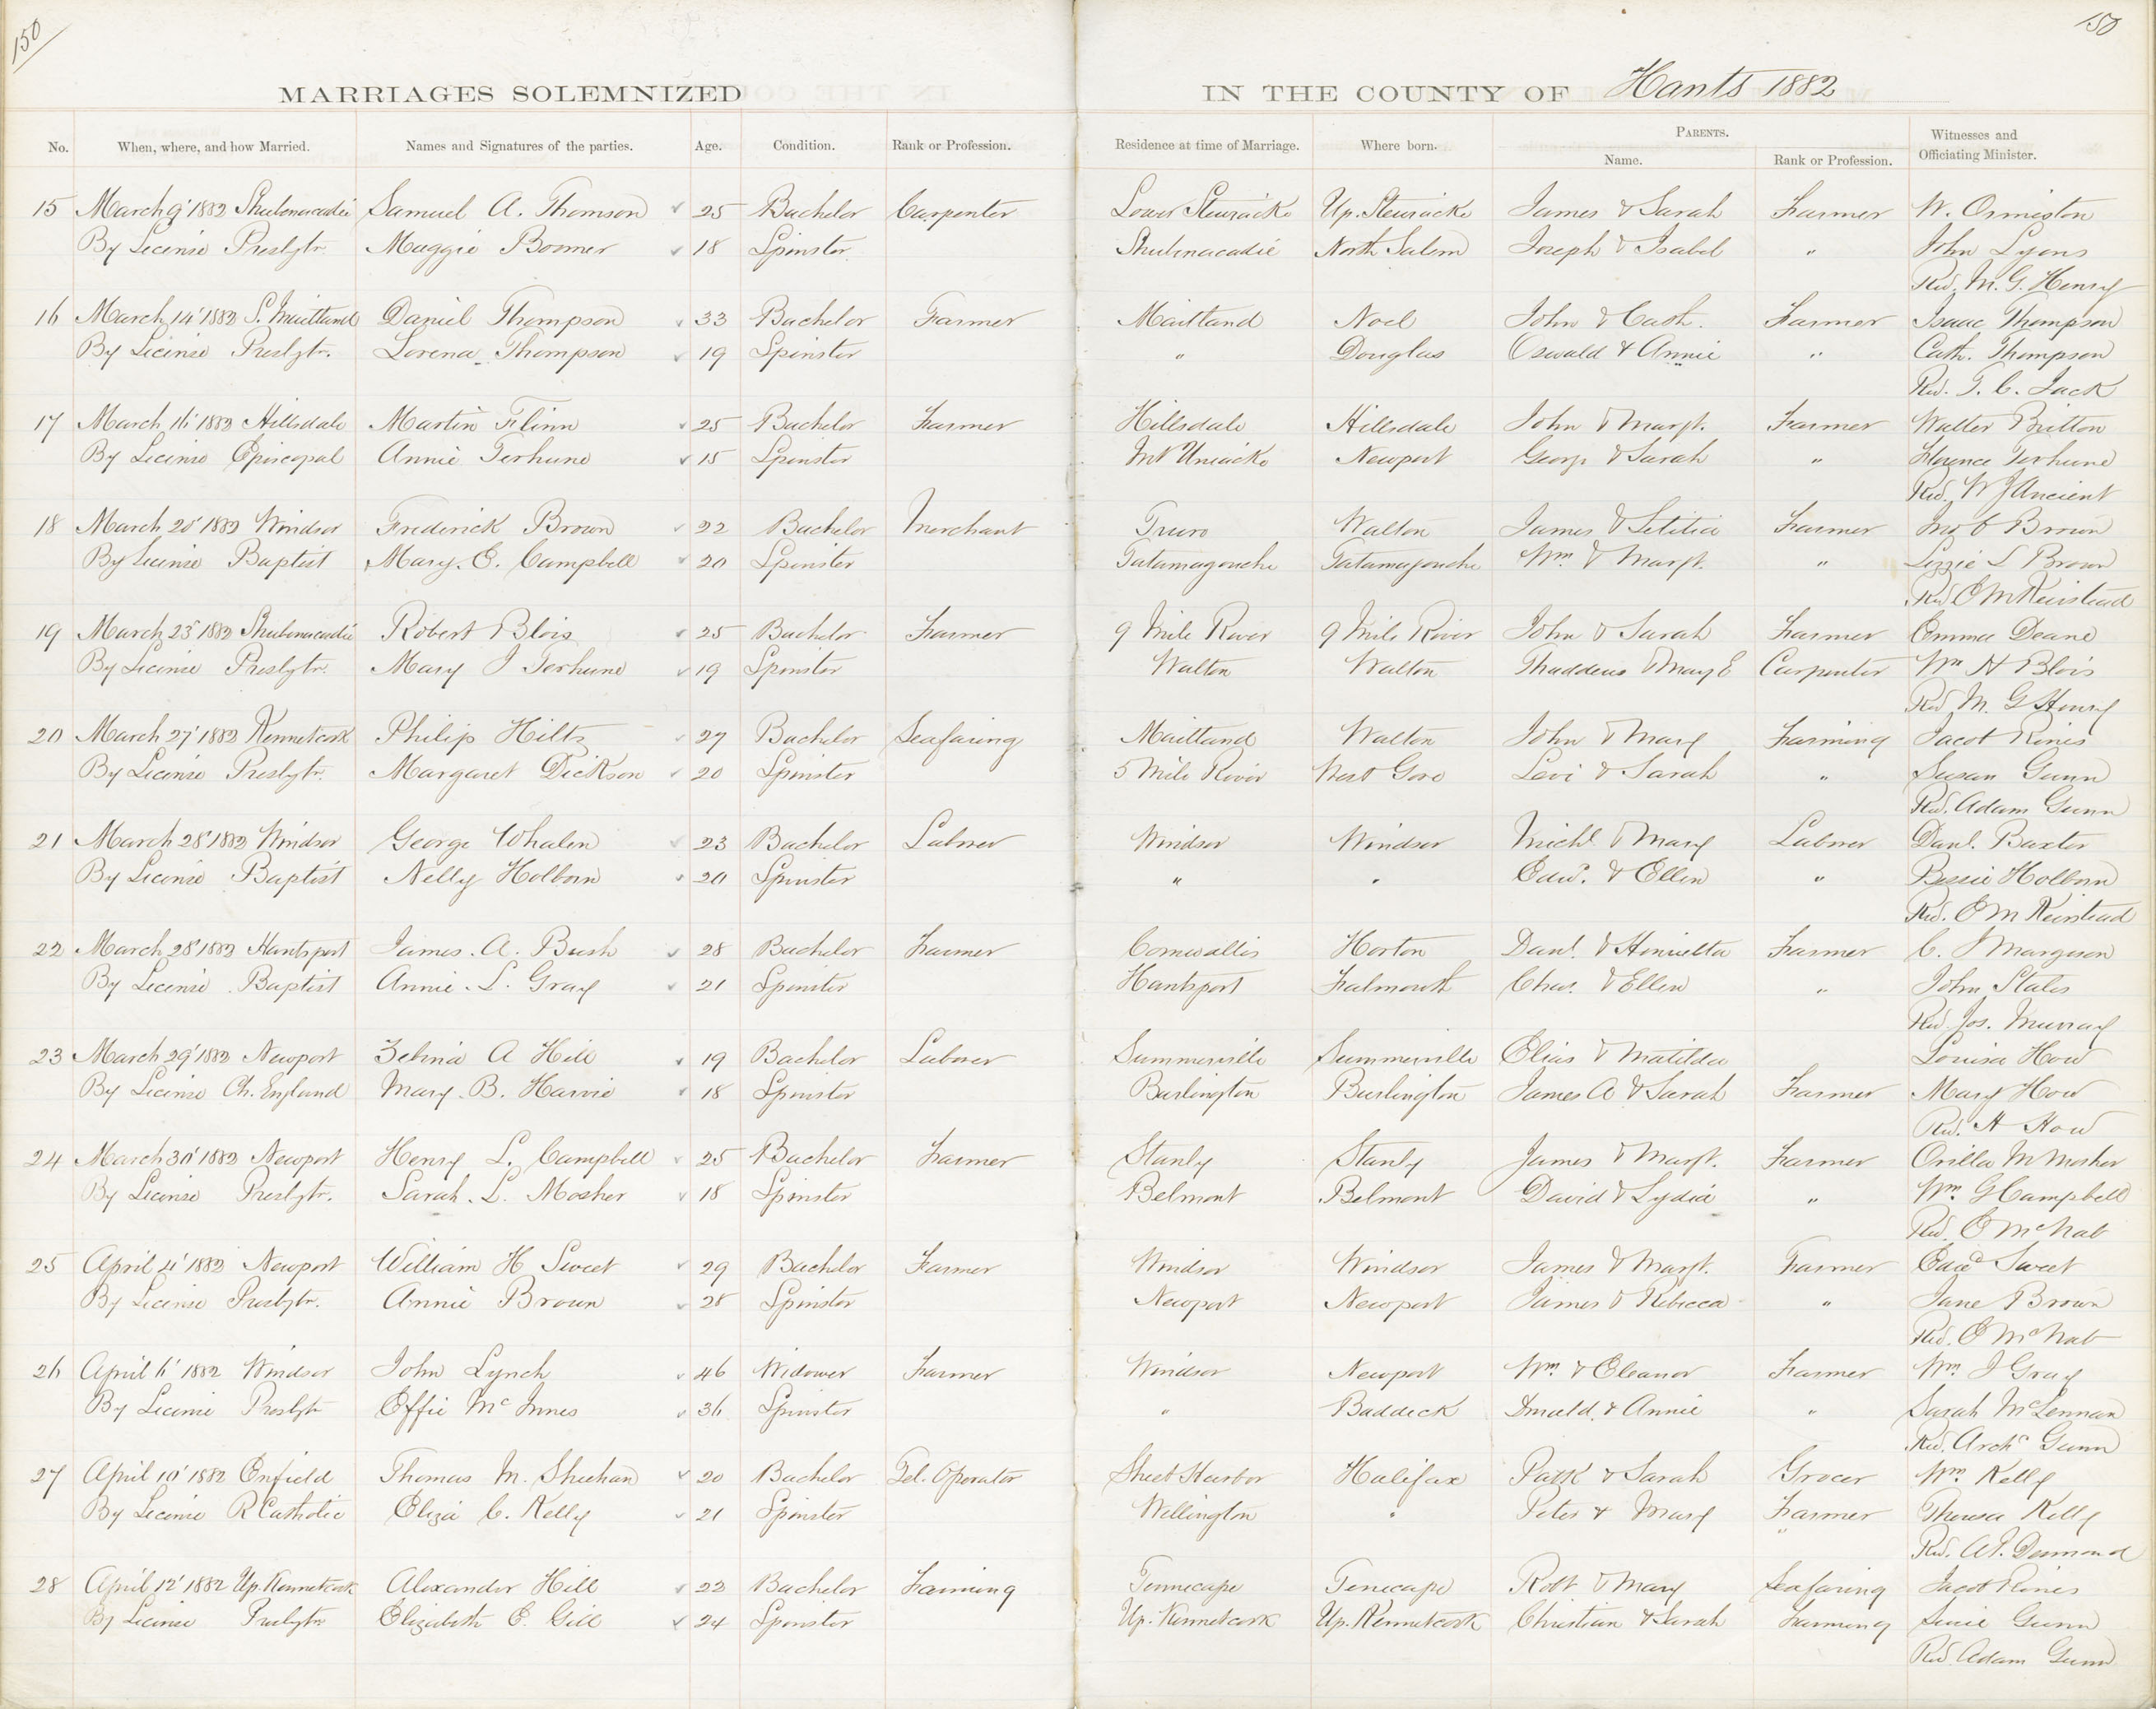 150
150
MARRIAGES SOLEMNIZED IN THE COUNTY OF Hants 1882
No. When, where, and how Married. Names and Signatures of the parties. Age. Condition. Rank or Profession. Residence at time of Marriage. Where born. PARENTS. Name. Rank or Profession. Witnesses and Officiating Minister.
15 March 9' 1882 Shubenacadie Samuel A. Thomson 25 Bachelor Carpenter Lower Stewiacke Up. Stewiacke James & Sarah Farmer W. Ormiston
By License Presbytr. Maggie Boomer 18 Spinster Shubenacadie North Salem Joseph & Isabel " John Lyons
Rev. M. G. Henry
16 March 14' 1882 S. Maitland Daniel Thompson 33 Bachelor Farmer Maitland Noel John & Cath. Farmer Isaac Thompson
By License Presbytr. Lorena Thompson 19 Spinster " Douglas Oswald & Annie " Cath. Thompson
Rev. T. C. Jack
17 March 16' 1882 Hillsdale Martin Flinn 25 Bachelor Farmer Hillsdale Hillsdale John & Margt. Farmer Walter Britton
By License Episcopal Annie Terhune 15 Spinster Mt Uniacke Newport George & Sarah " Florence Terhune
Rev. W J Ancient
18 March 20' 1882 Windsor Frederick Brown 22 Bachelor Merchant Truro Walton James & Letitia Farmer Jno C Brown
By License Baptist Mary. E. Campbell 20 Spinster Tatamagouche Tatamagouche Wm. & Margt. " Lizzie L Brown
Rev E M Keirstead
19 March 23' 1882 Shubenacadie Robert Blois 25 Bachelor Farmer 9 Mile River 9 Mile River John & Sarah Farmer Emma Deane
By License Presbytr. Mary J Terhune 19 Spinster Walton Walton Thaddeus & Mary E Carpenter Wm H Blois
Rev M. G Henry
20 March 27' 1882 Kennetcook Philip Hiltz 27 Bachelor Seafaring Maitland Walton John & Mary Farming Jacob Rines
By License Presbytr. Margaret Dickson 20 Spinster 5 Mile River West Gore Levi & Sarah " Susan Gunn
Rev. Adam Gunn
21 March 28' 1882 Windsor George Whalen 23 Bachelor Laborer Windsor Windsor Michl & Mary Laborer Danl. Baxter
By License Baptist Nelly Holborn 20 Spinster " " Edwd. & Ellen " Bessie Holborn
Rev. E M Keirstead
22 March 28' 1882 Hantsport James. A. Bush 28 Bachelor Farmer Cornwallis Horton Danl. & Henrietta Farmer C. J Margeson
By License Baptist Annie. L. Gray 21 Spinster Hantsport Falmouth Chas. & Ellen " John Stales
Rev. Jos. Murray
23 March 29' 1882 Newport Zebina A Hill 19 Bachelor Laborer Summerville Summerville Elias & Matilda Louisa How
By License Ch. England Mary. B. Harvie 18 Spinster Burlington Burlington James A & Sarah Farmer Mary How
Rev. H How
24 March 30' 1882 Newport Henry L. Campbell 25 Bachelor Farmer Stanly Stanly James & Margt. Farmer Orilla M Mosher
By License Presbytr. Sarah. L. Mosher 18 Spinster Belmont Belmont David & Lydia " Wm. G Campbell
Rev. E McNab
25 April 4' 1882 Newport William H Sweet 29 Bachelor Farmer Windsor Windsor James & Margt. Farmer Edwd Sweet
By License Presbytr. Annie Brown 28 Spinster Newport Newport James & Rebecca " Jane Brown
Rev. E McNab
26 April 6' 1882 Windsor John Lynch 46 Widower Farmer Windsor Newport Wm. & Eleanor Farmer Wm. J Gray
By License Presbytr Effie McInnes 36 Spinster " Baddeck Donald. & Annie " Sarah McLennan
Rev. Archd Gunn
27 April 10' 1882 Enfield Thomas M. Sheehan 20 Bachelor Tel. Operator Sheet Harbor Halifax Patk & Sarah Grocer Wm Kelly
By License R Catholic Eliza C. Kelly 21 Spinster Wellington " Peter & Mary Farmer Theresa Kelly
Rev. A P. Desmond
28 April 12' 1882 Up. Kennetcook Alexander Hill 22 Bachelor Farming Tennecape Tenecape Robt & Mary Seafaring Jacob Rines
By License Presbytr Elizabeth E. Gill 24 Spinster Up. Kennetcook Up. Kennetcook Christian & Sarah Farming Susie Gunn
Rev. Adam Gunn